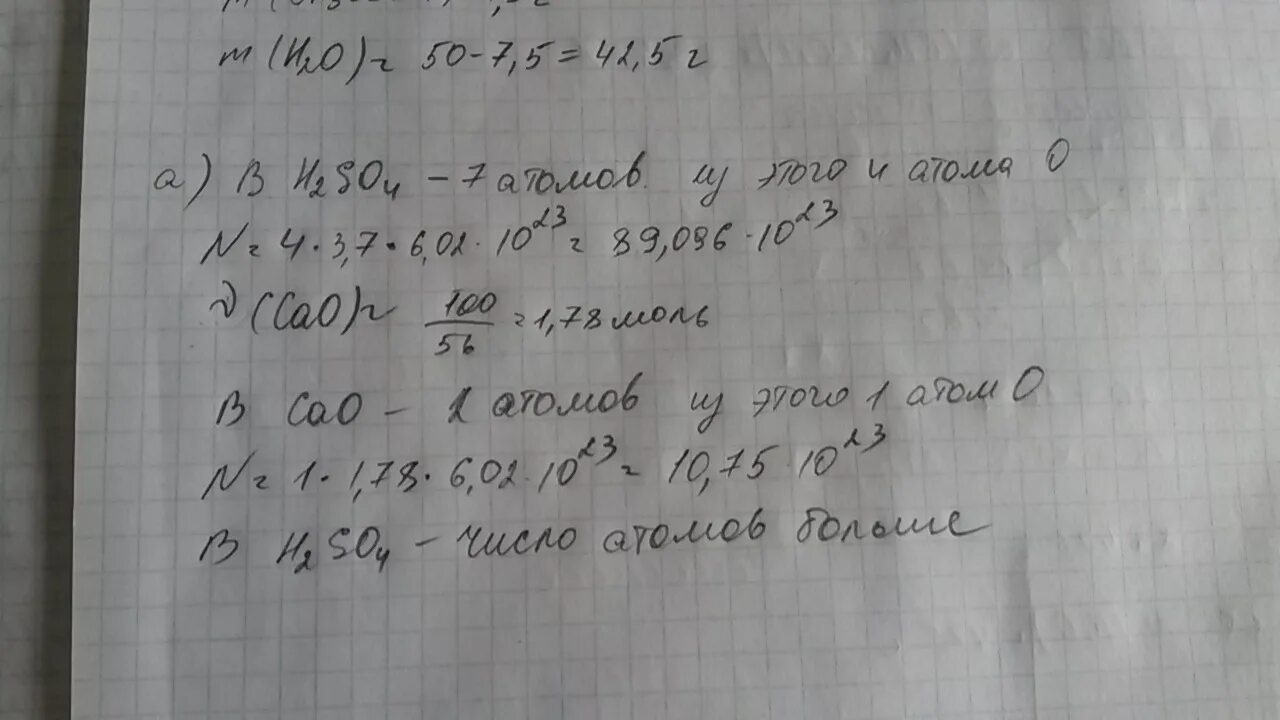 m(H₂O) = 50-7,5 = 42,5 г
а) В H₂SO₄ – 7 атомов из этого 4 атома О
N = 4·3,7·6,02·10²³ = 89,096·10²³
ν(CaO) = 100/56 = 1,78 моль
В CaO – 2 атомов из этого 1 атом О
N = 1·1,78·6,02·10²³ = 10,75·10²³
В H₂SO₄ – число атомов больше